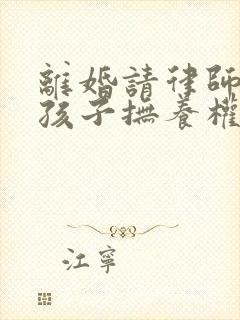 離婚請律師
孩子撫養權
江寧